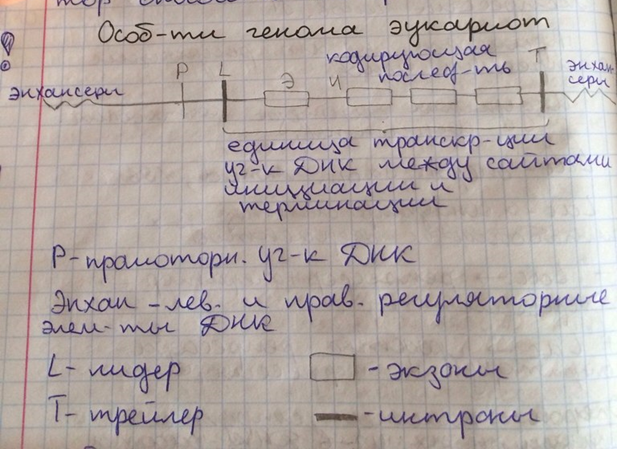 Особ-ти генома эукариот
энхансеры P L Э И кодирующая послед-ть T энхан-
серы
единица транскр-ции
уч-к ДНК между сайтами
инициации и
терминации
P- промоторн. уч-к ДНК
Энхан - лев. и прав. регуляторные
элем-ты ДНК
L- лидер
- экзоны
T- трейлер
- интроны